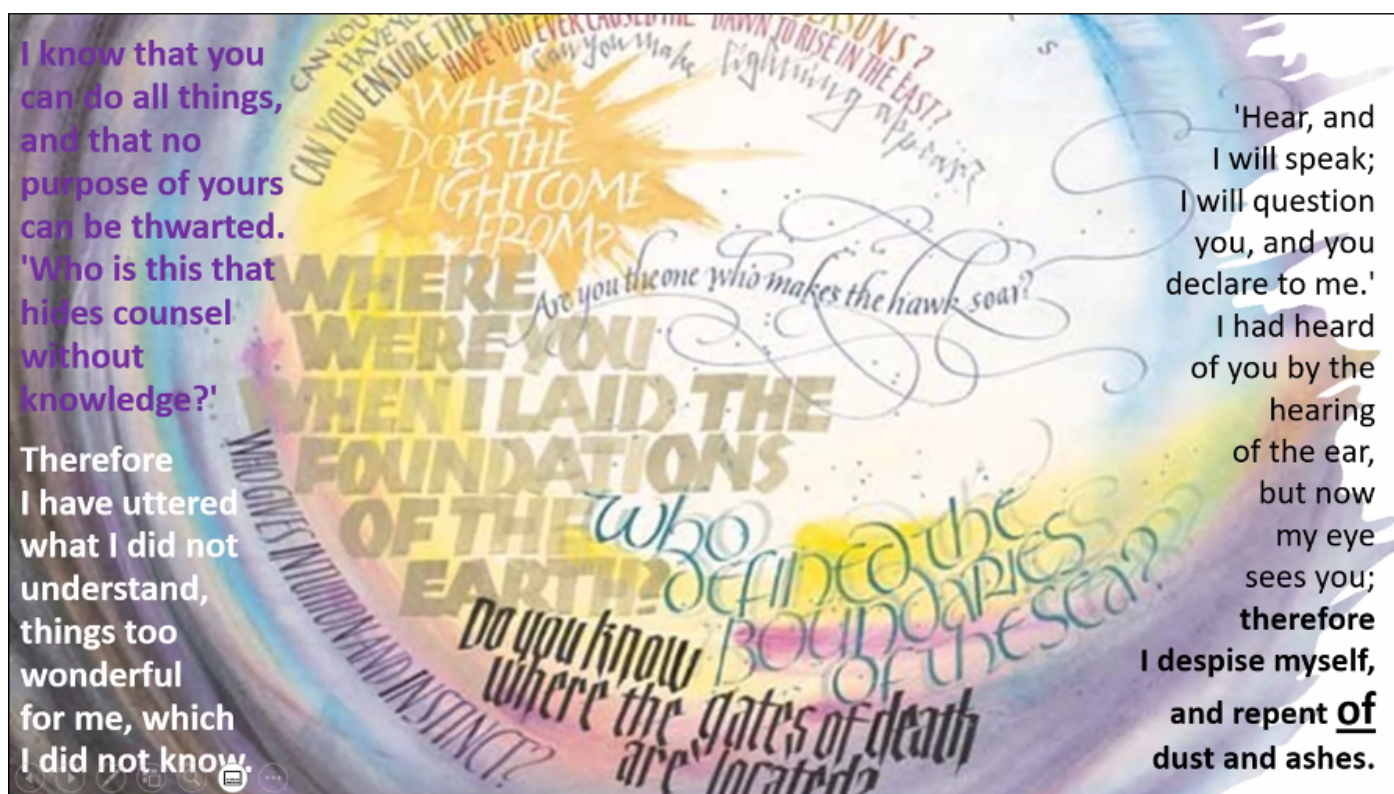 I know that you
can do all things,
and that no
purpose of yours
can be thwarted.
'Who is this that
hides counsel
without
knowledge?'
Therefore
I have uttered
what I did not
understand,
things too
wonderful
for me, which
I did not know.
CAN YOU
HAVE YO
CAN YOU ENSURE THE
HAVE YOU EVER CAUSED THE DAWN TO RISE IN THE EAST?
can you make lightning appear?
WHERE
DOES THE
LIGHT COME
FROM?
Are you the one who makes the hawk soar?
WHERE
WERE YOU
WHEN I LAID THE
FOUNDATIONS
OF THE
EARTH?
WHO GIVES INTUITION AND INSTINCT?
Who
defined the
BOUNDARIES
of the sea?
Do you know
where the gates of death
are located?
'Hear, and
I will speak;
I will question
you, and you
declare to me.'
I had heard
of you by the
hearing
of the ear,
but now
my eye
sees you;
therefore
I despise myself,
and repent of
dust and ashes.